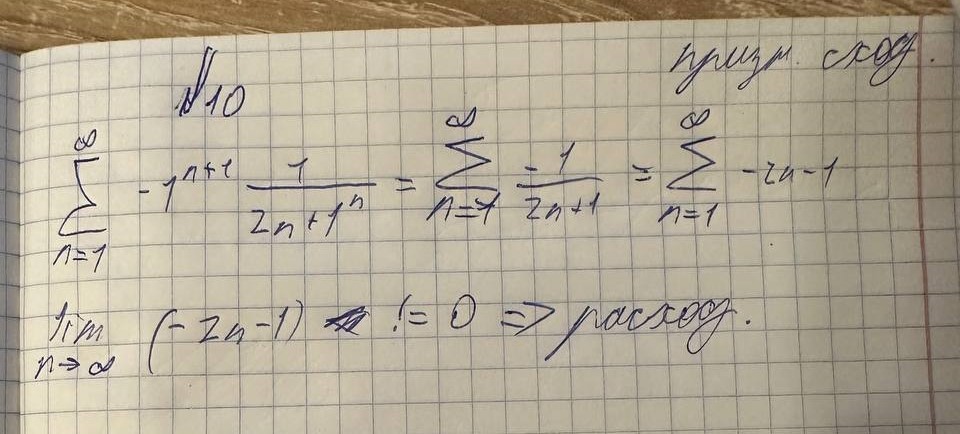 №10 призн. сход.
∞ ∑ n=1 -1^{n+1} \frac{1}{2n+1^n} = ∞ ∑ n=1 \frac{-1}{2n+1} = ∞ ∑ n=1 -2n-1
lim n→∞ (-2n-1) != 0 => расход.